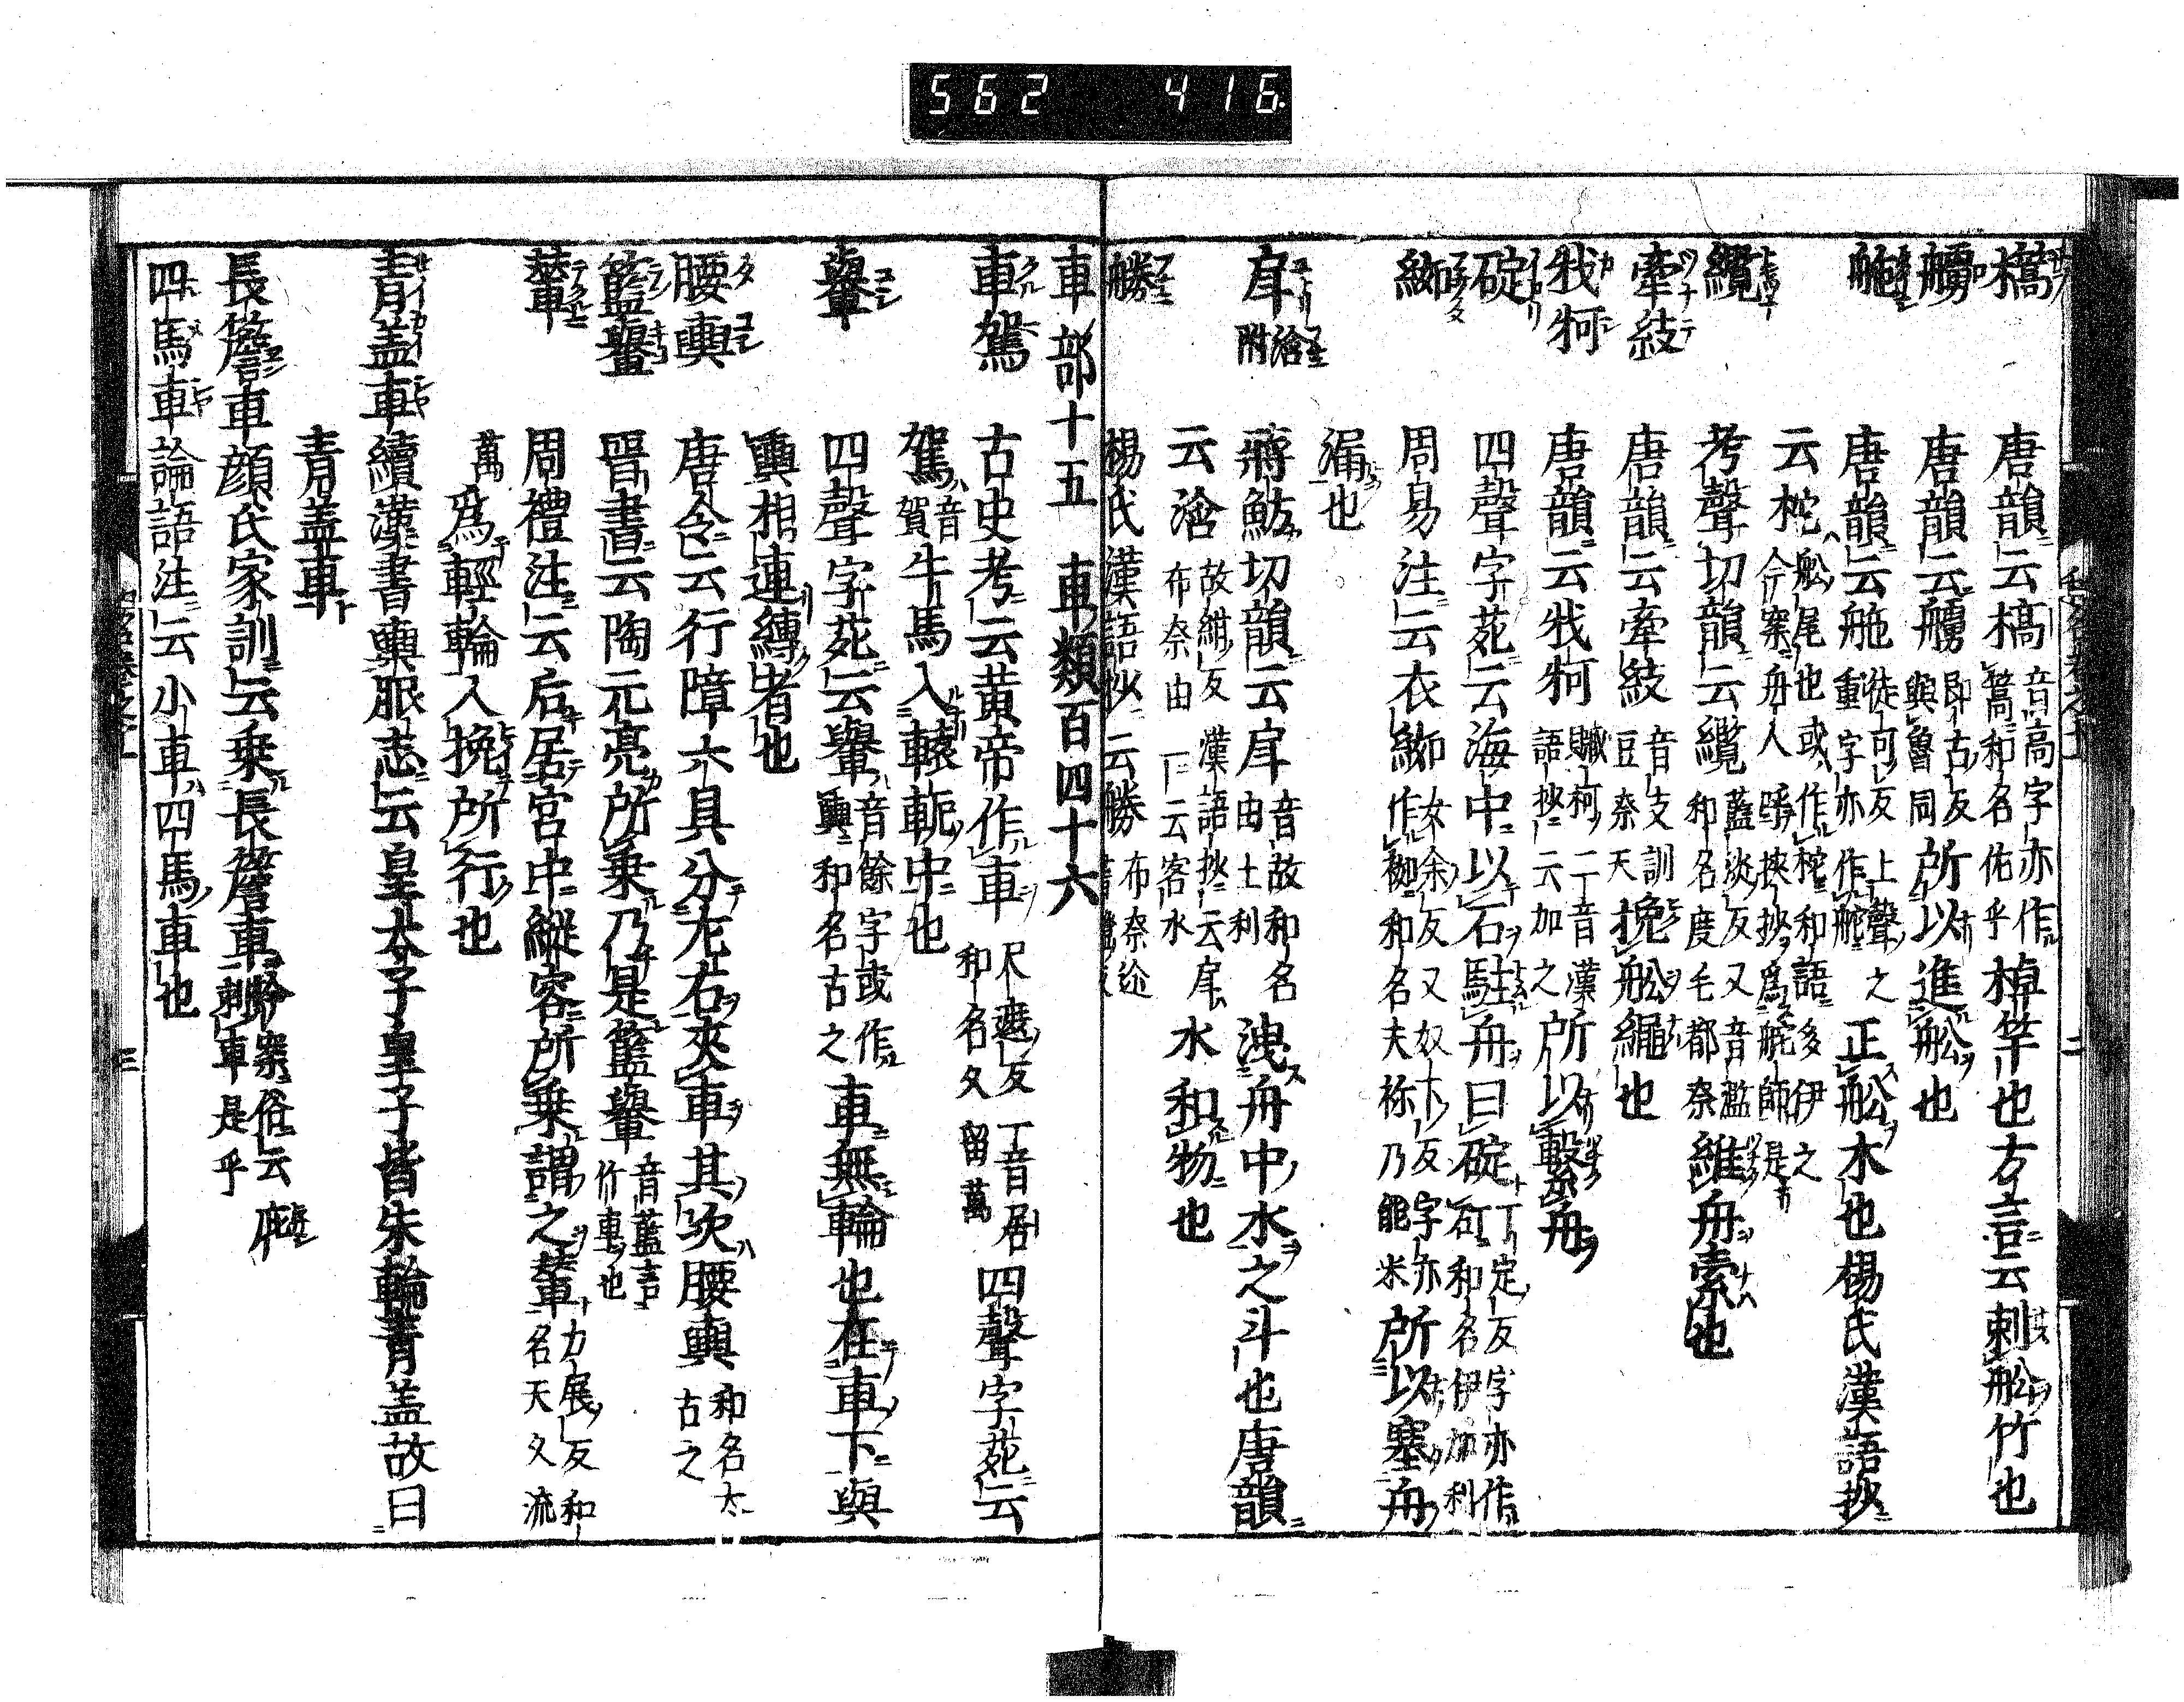 562 416
㰏 唐韻云㰏音高字亦作篙和名佐乎棹竿也方言云刺舩竹也
艣 唐韻云艣郎古反與魯同所以進舩也
舵 唐韻云舵徒可反上聲之重字亦作䑨正舩木也楊氏漢語抄
云柁舩尾也或作柂和語多伊之今案舟人呼挾抄爲舵師是
纜 考聲切韻云纜藍淡反又音濫和名度毛都奈維舟索也
牽䊼 唐韻云牽䊼音支訓豆奈天挽舩繩也
𣏾牁 唐韻云𣏾牁臧柯二音漢語抄云加之所以繫舟
碇 四聲字苑云海中以石駐舟曰碇丁定反字亦作矴和名伊加利
袽 周易注云衣袽女余反又奴下反字亦作𥿮和名夫祢乃能米所以塞舟
漏也
戽 浛附 蔣魴切韻云戽音故和名由土利洩舟中水之斗也唐韻
云浛故紺反漢語抄云戽布奈由一云客水水和物也
艕 楊氏漢語抄云艕布奈
車部十五 車類百四十六
車駕 古史考云黄帝作車尺遮反一音居和名久留萬四聲字苑云
駕音賀牛馬入轅軛中也
轝 四聲字苑云轝音餘字或作輿和名古之車無輪也在車下與
輿相連縛者也
腰輿 唐令云行障六具分左右夾車其次腰輿和名太古之
籃轝 晋書云陶元亮所乗乃是籃轝音藍竹車也
輦 周禮注云后居宮中縱容所乗謂之輦力展反和名天久流萬
爲輕輪人挽所行也
青盖車 續漢書輿服志云皇太子皇子皆朱輪青盖故曰
青盖車
長簷車 顔氏家訓云乗長簷車今案俗云庇刺車是乎
四馬車 論語注云小車四馬車也